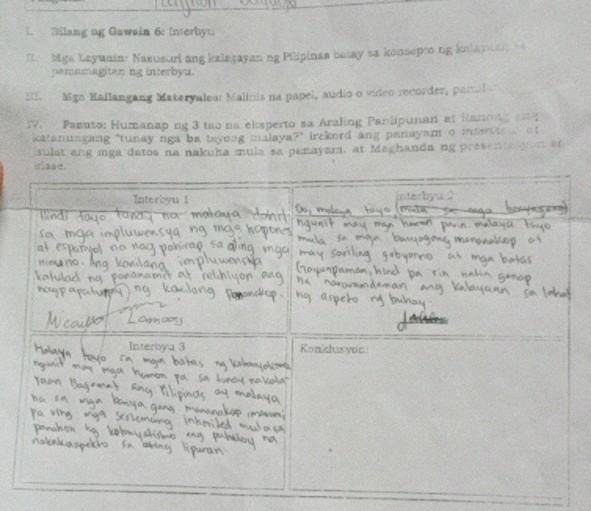 I. Bilang ng Gawain 6: Interbyu
II. Mga Layunin: Nasusuri ang kalagayan ng Pilipinas batay sa konsepto ng
pamamagitan ng interbyu.
III. Mga Kailangang Materyales: Malinis na papel, audio o video recorder,
IV. Panuto: Humanap ng 3 tao na eksperto sa Araling Panlipunan at
katanungang "tunay nga ba tayong malaya?" irekord ang panayam o
isulat ang mga datos na nakuha mula sa panayam. at Maghanda ng
klase.
Interbyu 1
Hindi tayo tunay na malaya dahil
sa mga impluwensya ng mga hapones
at espanyol na nag pahirap sa ating mga
ninuno. Ang kanilang impluwensya
katulad ng pananamit at relihiyon ang
nagpapatunay ng kanilang pananakop.
Interbyu 2
Oo, malaya tayo mula sa mga banyagang
ngunit may mga hamon parin. malaya tayo
mula sa mga banyagang mananakop at
may sariling gobyerno at mga batas
Gayunpaman, hindi pa rin natin ganap
na nararamdaman ang kalayaan sa lahat
ng aspeto ng buhay.
Interbyu 3
Malaya tayo sa mga batas ng
ngunit may mga hamon pa sa tunay na kala
yaan Bagamat ang Pilipinas ay malaya
na sa mga banyagang mananakop
pa ring mga sistemang inherited mula sa
panahon ng kolonyalismo ang patuloy na
nakakaapekto sa ating lipunan.
Konklusyon: